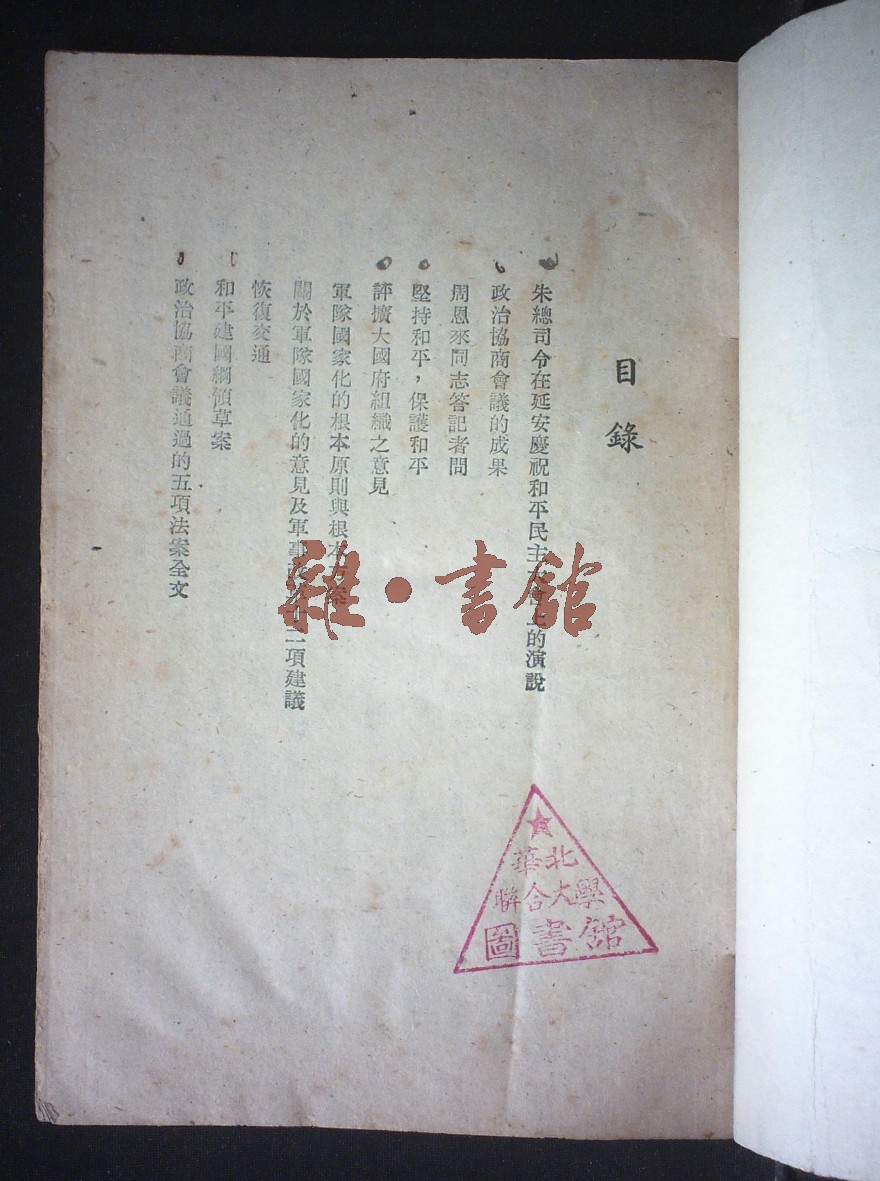 目錄
朱總司令在延安慶祝和平民主大會上的演說
政治協商會議的成果
周恩來同志答記者問
堅持和平，保護和平
評擴大國府組織之意見
軍隊國家化的根本原則與根本方案
關於軍隊國家化的意見及軍事 十二項建議
恢復交通
和平建國綱領草案
政治協商會議通過的五項法案全文
雜·書館
華北
聯合大學
圖書館